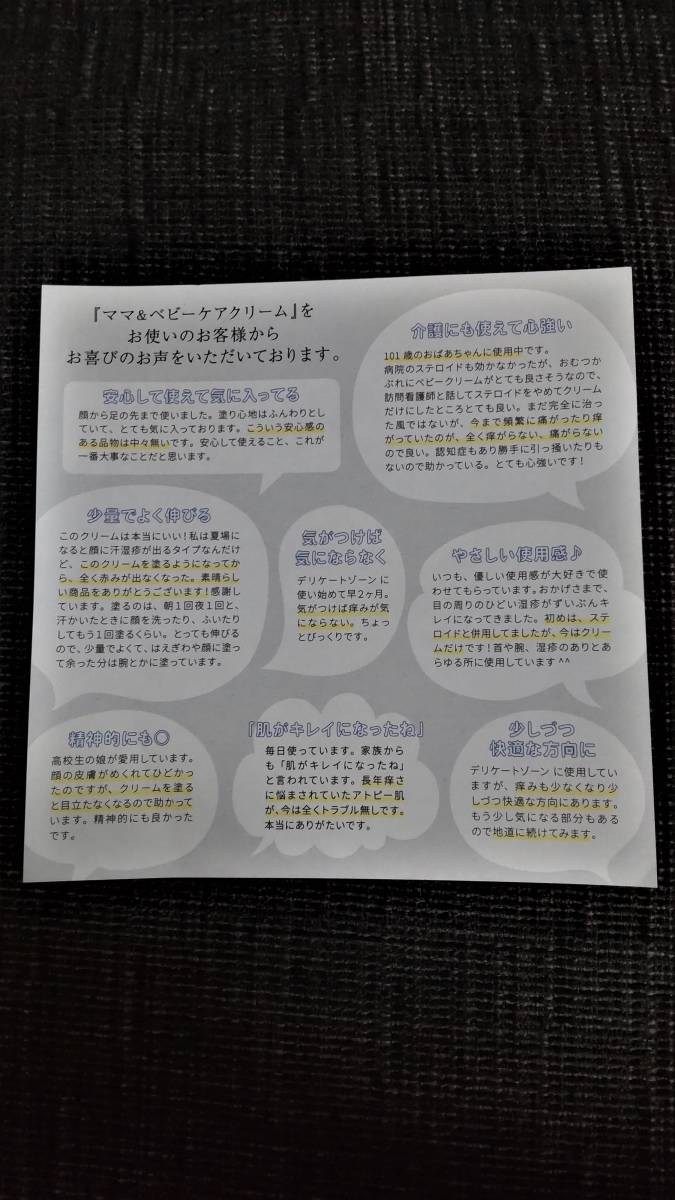 『ママ&ベビーケアクリーム』を
お使いのお客様から
お喜びのお声をいただいております。
安心して使えて気に入ってる
顔から足の先まで使いました。塗り心地はふんわりとし
ていて、とても気に入っております。こういう安心感の
ある品物は中々無いです。安心して使えること、これが
一番大事なことだと思います。
介護にも使えて心強い
101歳のおばあちゃんに使用中です。
病院のステロイドも効かなかったが、おむつか
ぶれにベビークリームがとても良さそうなので、
訪問看護師と話してステロイドをやめてクリーム
だけにしたところとても良い。まだ完全に治っ
た風ではないが、今まで頻繁に痛がったり痒
がっていたのが、全く痒がらない、痛がらない
ので良い。認知症もあり勝手に引っ掻いたりも
ないので助かっている。とても心強いです!
少量でよく伸びる
このクリームは本当にいい!私は夏場に
なると顔に汗湿疹が出るタイプなんだけ
ど、このクリームを塗るようになってか
ら、全く赤みが出なくなった。素晴らし
い商品をありがとうございます!感謝し
ています。塗るのは、朝1回夜1回と、
汗かいたときに顔を洗ったり、ふいたり
してもう1回塗るくらい。とっても伸びる
ので、少量でよくて、はえぎわや顔に塗っ
て余った分は腕とかに塗っています。
気がつけば
気にならなく
デリケートゾーン に
使い始めて早2ヶ月。
気がつけば痒みが気
にならない。ちょっ
とびっくりです。
やさしい使用感♪
いつも、優しい使用感が大好きで使
わせてもらっています。おかげさまで、
目の周りのひどい湿疹がずいぶんキ
レイになってきました。初めは、ステ
ロイドと併用してましたが、今はクリー
ムだけです!首や腕、湿疹のありとあ
らゆる所に使用しています^^
精神的にも○
高校生の娘が愛用しています。
顔の皮膚がめくれてひどかっ
たのですが、クリームを塗る
と目立たなくなるので助かって
います。精神的にも良かった
です。
「肌がキレイになったね」
毎日使っています。家族から
も「肌がキレイになったね」
と言われています。長年痒さ
に悩まされていたアトピー肌
が、今は全くトラブル無しです。
本当にありがたいです。
少しづつ
快適な方向に
デリケートゾーン に使用してい
ますが、痒みも少なくなり少
しづつ快適な方向にあります。
もう少し気になる部分もある
ので地道に続けてみます。